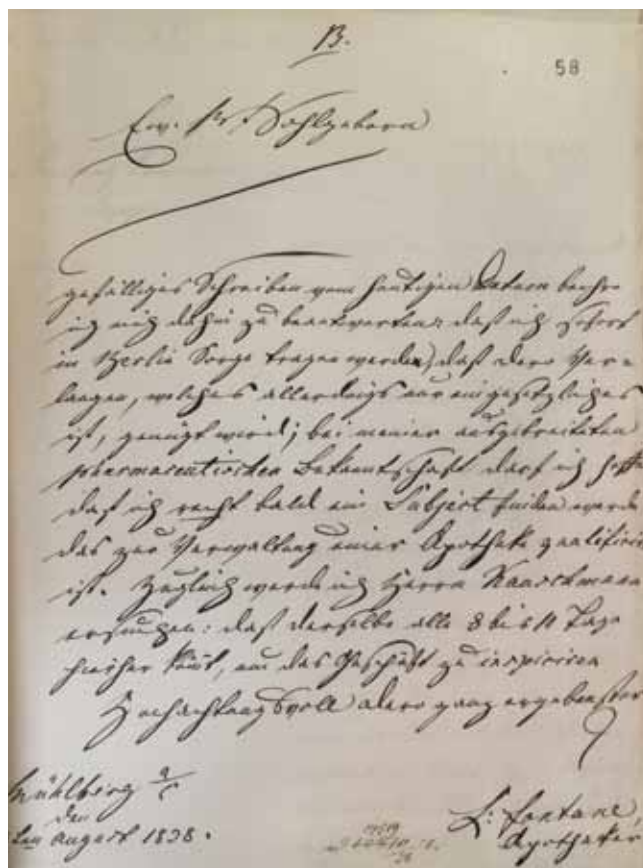 B.
58
Ew. Wohlgeboren
gefälliges Schreiben vom heutigen Datum beehre
ich mich dahin zu beantworten: daß ich sofort
in Berlin Sorge tragen werde, daß dero Ver-
langen, welches allerdings nur ein gesetzliches
ist, genügt wird; bei meiner ausgebreiteten
pharmaceutischen Bekanntschaft darf ich hoffen
daß ich recht bald ein Subject finden werde
das zur Verwaltung einer Apotheke qualificirt
ist. Zugleich werde ich Herrn
ersuchen: daß derselbe alle 8 bis Tage
hierher kömt, um das Geschäft zu inspiciren
Hochachtungsvoll dero ganz ergebenster
Mühlberg a/
den
August 1838.
L: Fontane,
Apotheker